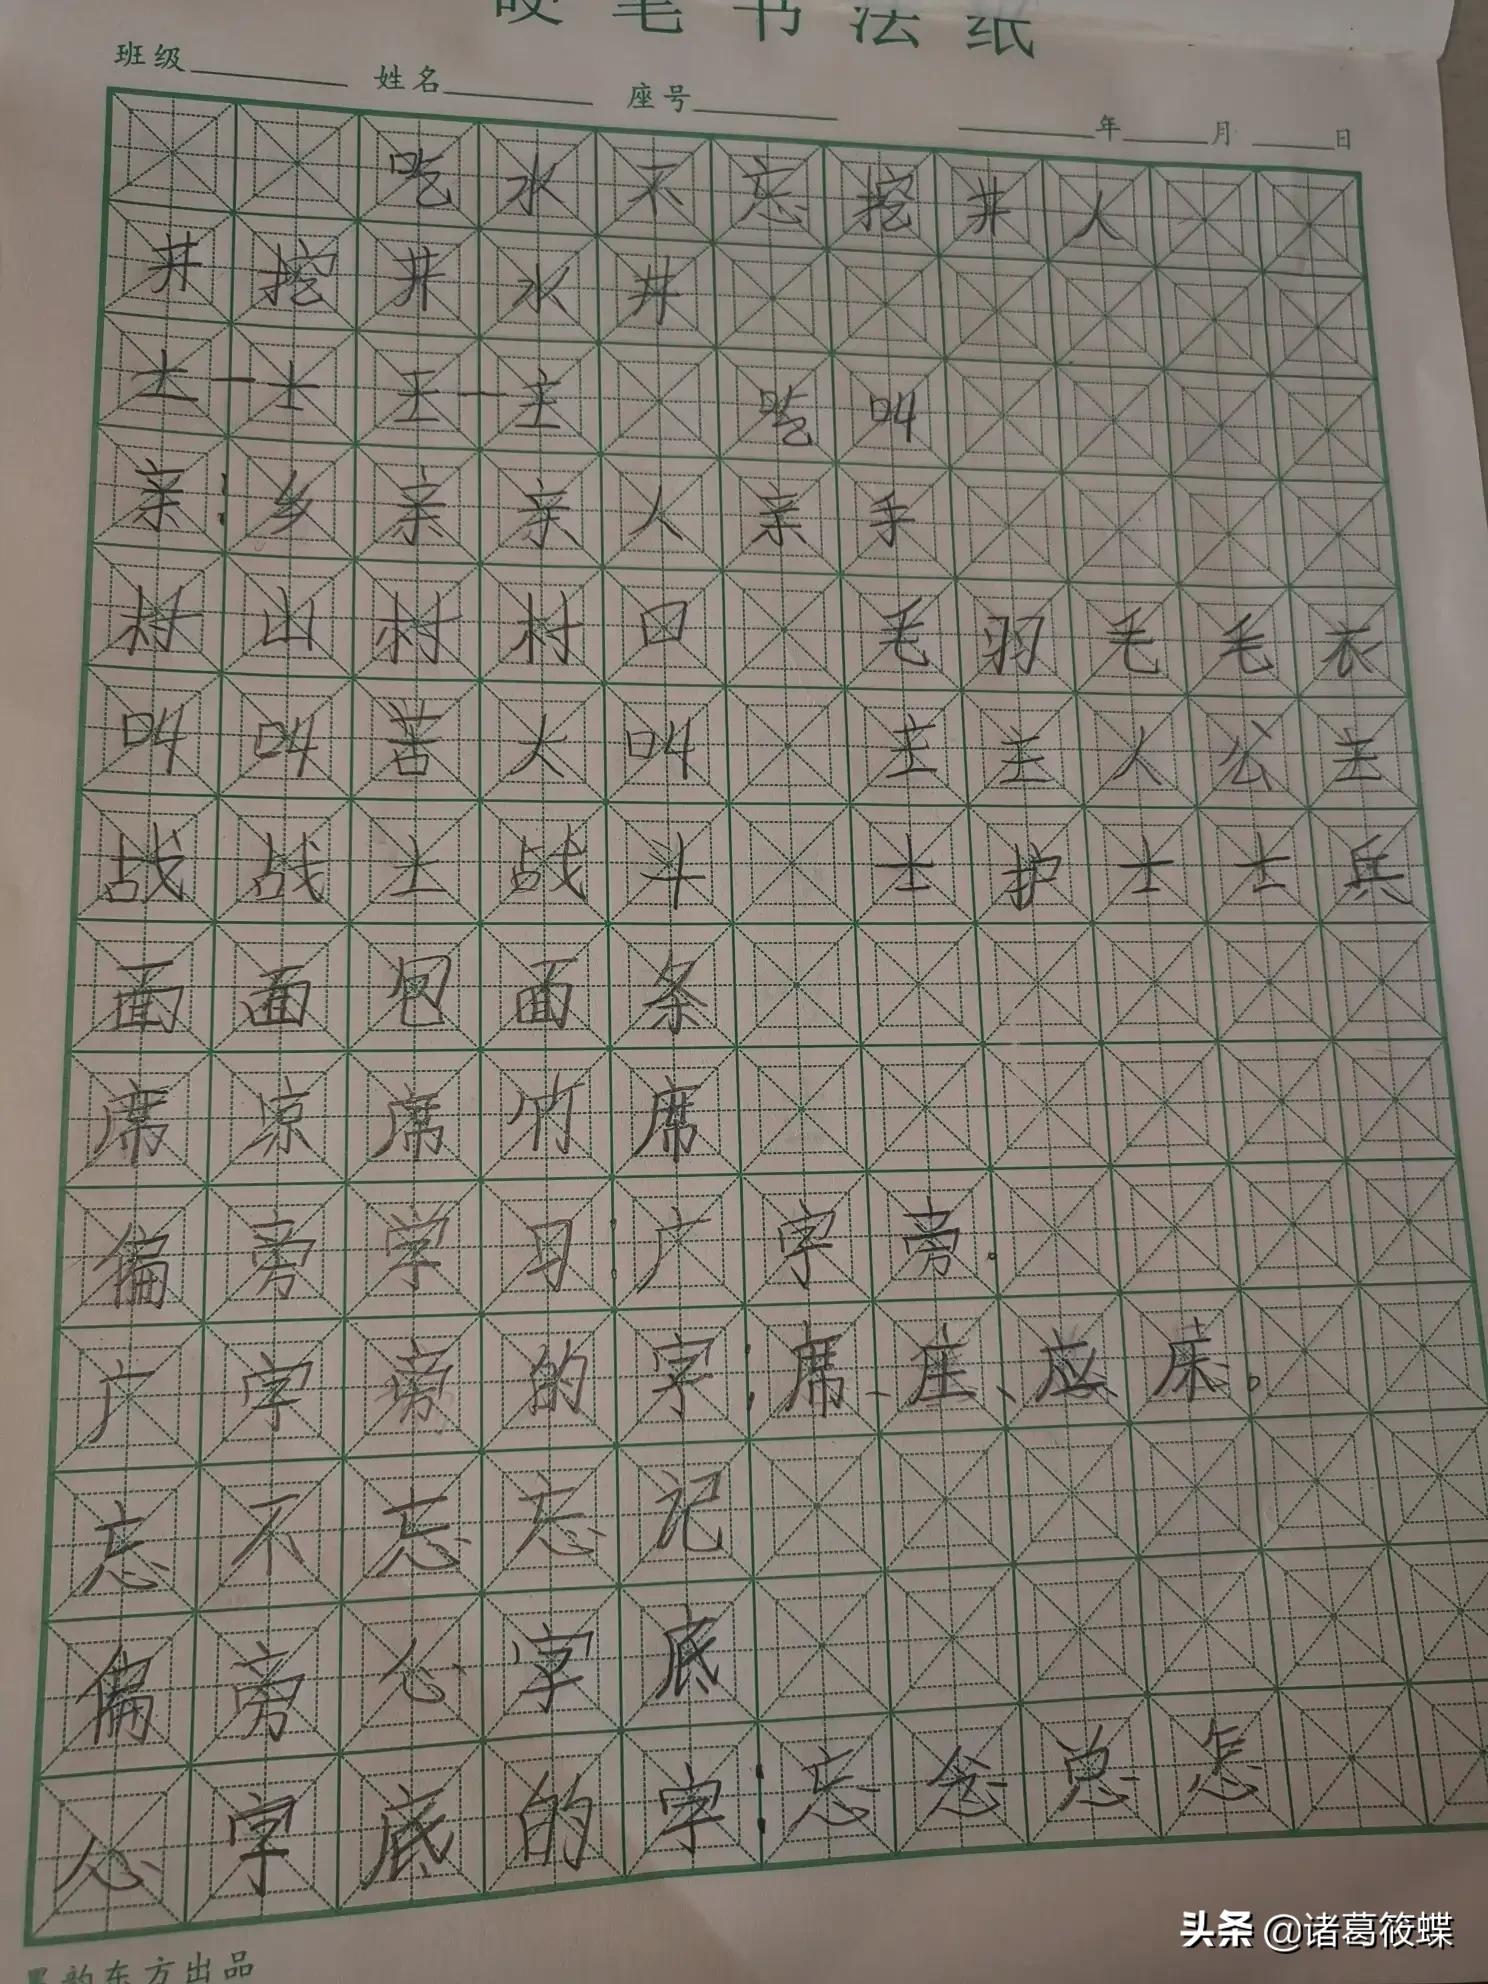 硬笔书法纸
班级 姓名 座号 年 月 日
吃水不忘挖井人
井 挖井 水井
土一士 王一主 吃 叫
亲:乡亲 亲人 亲手
村 山村 村口 毛 羽毛 毛衣
叫 叫苦 大叫 主 主人 公主
战 战士 战斗 士 护士 士兵
面 面包 面条
席 凉席 竹席
偏旁学习:广字旁。
广字旁的字:席、座、应、床。
忘 不忘 忘记
偏旁心字底
心字底的字:忘 念 总 怎
墨韵东方出品
头条 @诸葛筱蝶